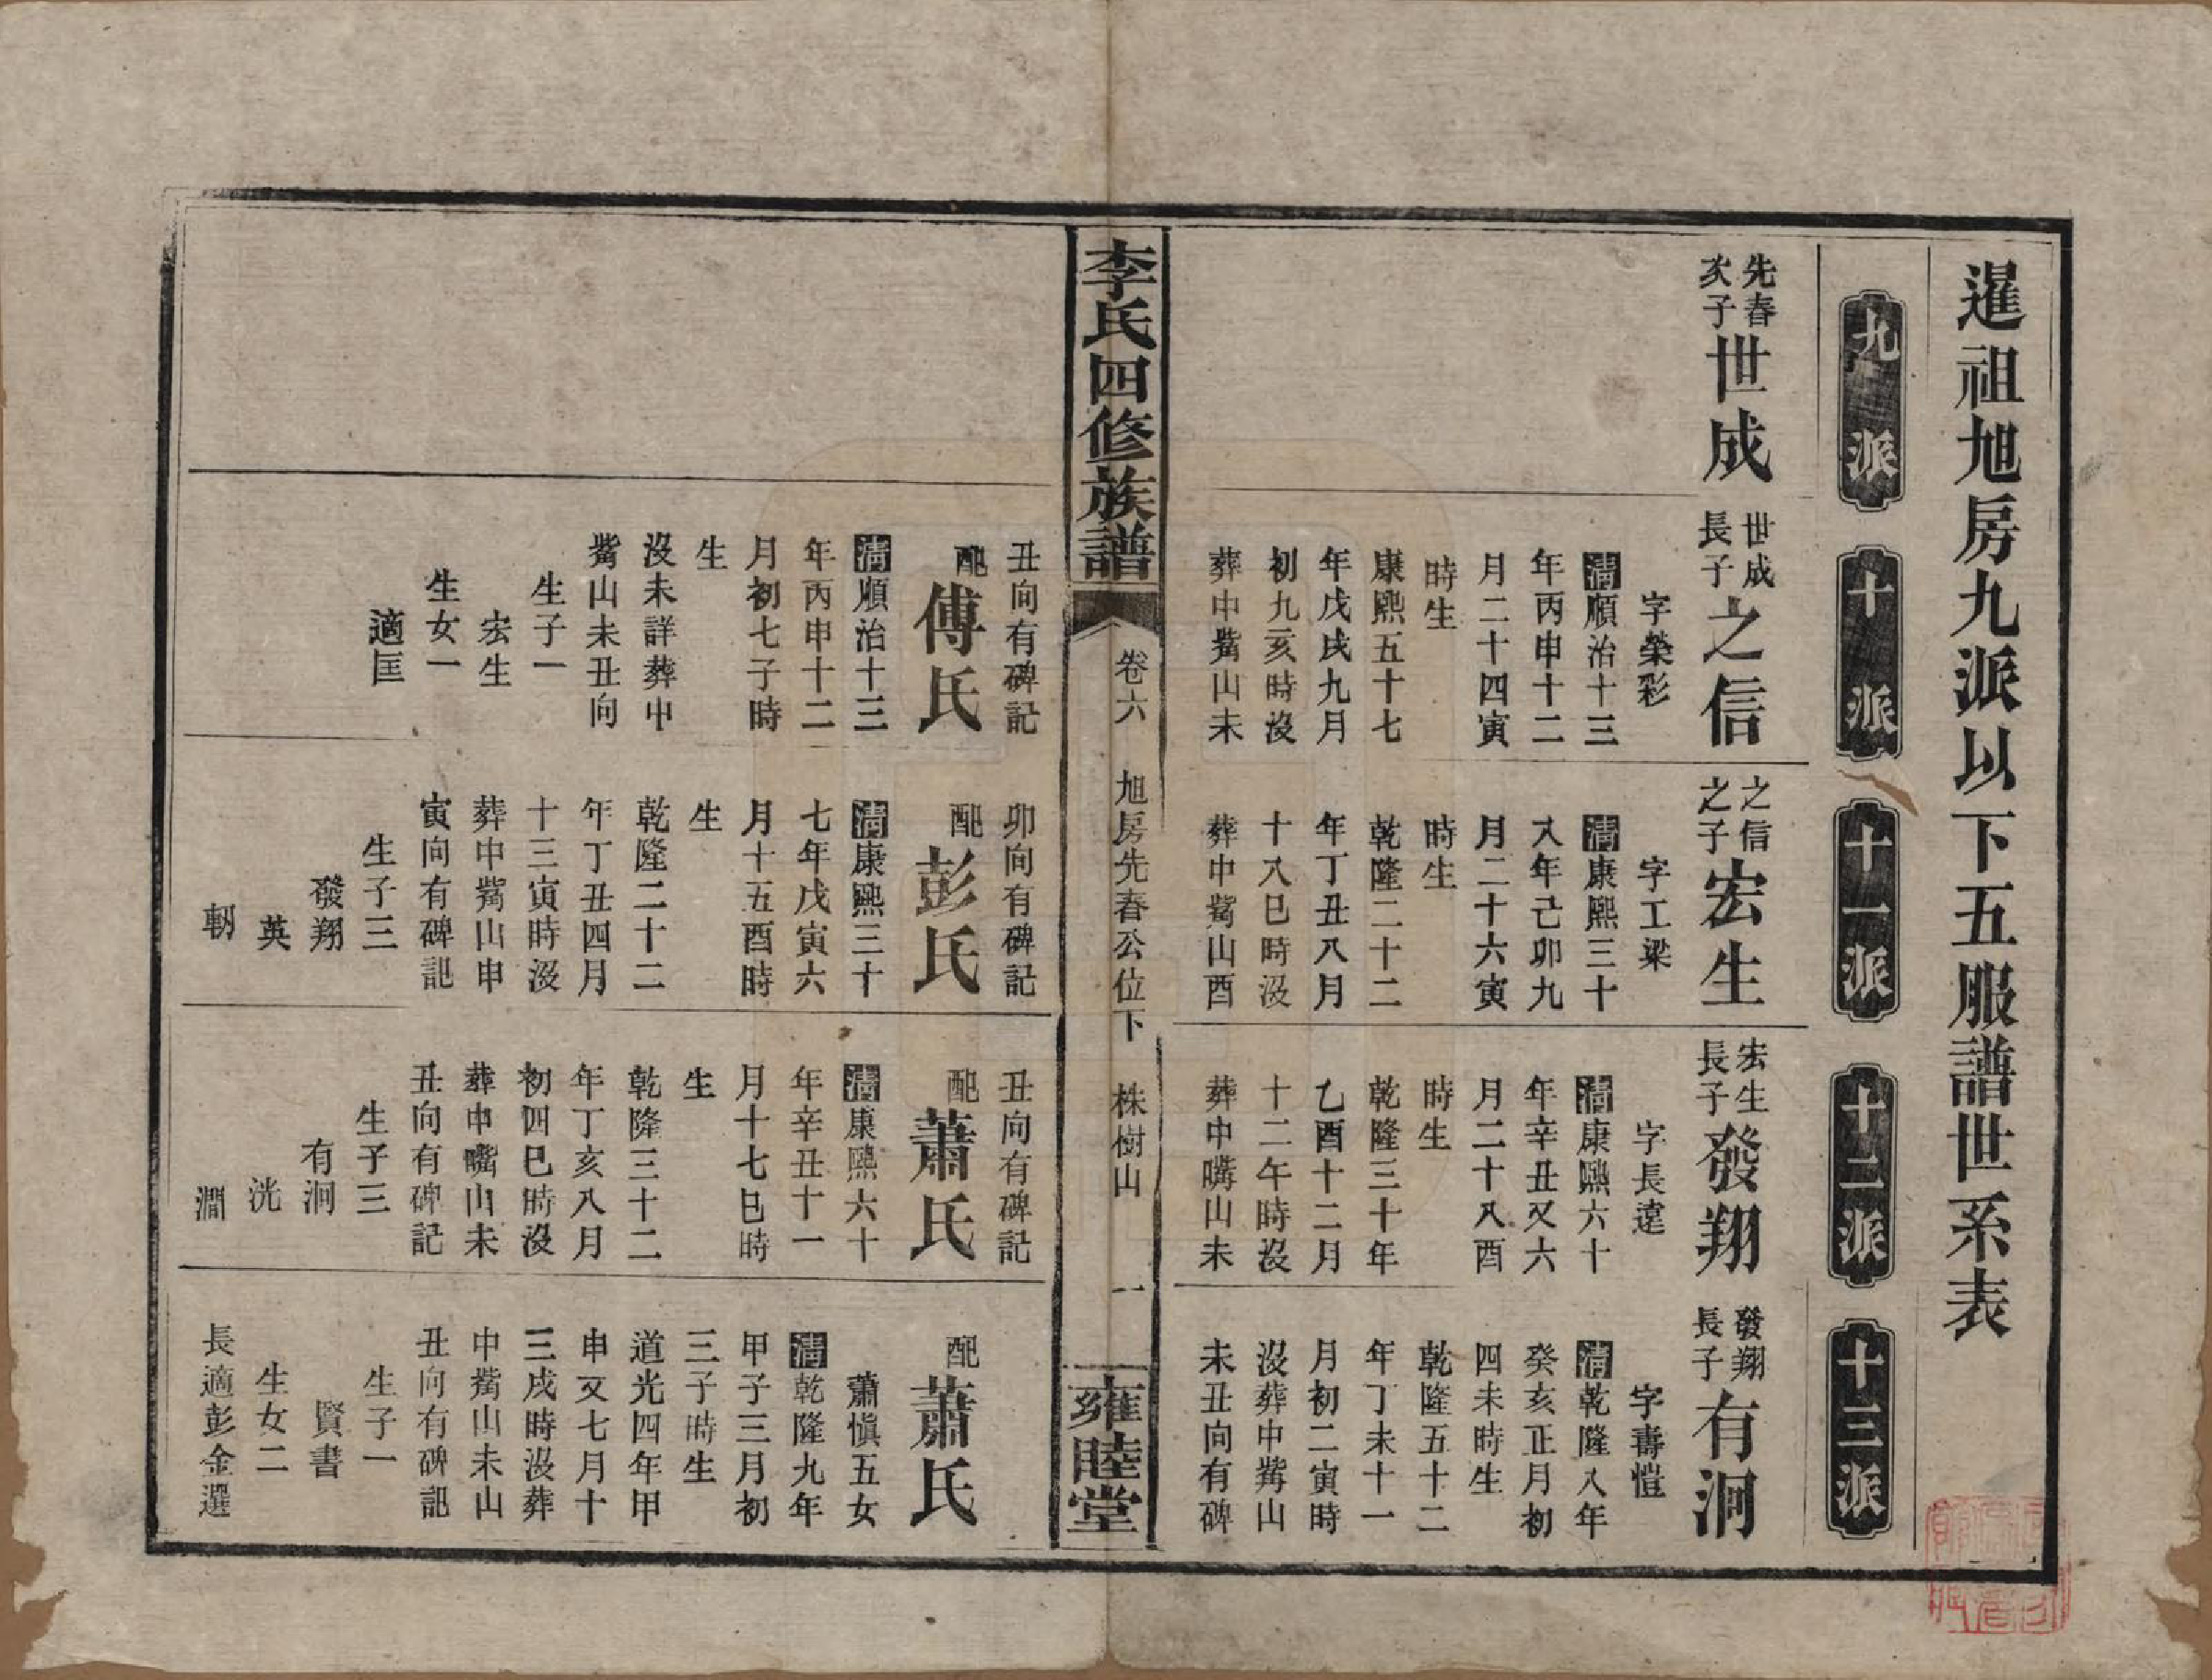 暹祖旭房九派以下五服譜世系表
九派
十派
十一派
十二派
十三派
先春
次子
世成
世成
長子
之信
字榮彩
清順治十三
年丙申十二
月二十四寅
時生
康熙五十七
年戊戌九月
初九亥時沒
葬中觜山未
丑向有碑記
配
傅氏
清順治十三
年丙申十二
月初七子時
生
沒未詳葬中
觜山未丑向
生子一
宏生
生女一
適匡
之信
之子
宏生
字工梁
清康熙三十
八年己卯九
月二十六寅
時生
乾隆二十二
年丁丑八月
十八巳時沒
葬中觜山酉
卯向有碑記
配
彭氏
清康熙三十
七年戊寅六
月十五酉時
生
乾隆二十二
年丁丑四月
十三寅時沒
葬中觜山申
寅向有碑記
生子三
發翔
英
翱
宏生
長子
發翔
字長遠
清康熙六十
年辛丑又六
月二十八酉
時生
乾隆三十年
乙酉十二月
十二午時沒
葬中嘴山未
丑向有碑記
配
蕭氏
清康熙六十
年辛丑十一
月十七巳時
生
乾隆三十二
年丁亥八月
初四巳時沒
葬中嘴山未
丑向有碑記
生子三
有泂
洸
澗
發翔
長子
有泂
字壽愷
清乾隆八年
癸亥正月初
四未時生
乾隆五十二
年丁未十一
月初二寅時
沒葬中觜山
未丑向有碑
配
蕭氏
蕭愼五女
清乾隆九年
甲子三月初
三子時生
道光四年甲
申又七月十
三戌時沒葬
中觜山未山
丑向有碑記
生子一
賢書
生女二
長適彭金選
李氏四修族譜
卷六
旭房先春公位下
株樹山
一
雍睦堂